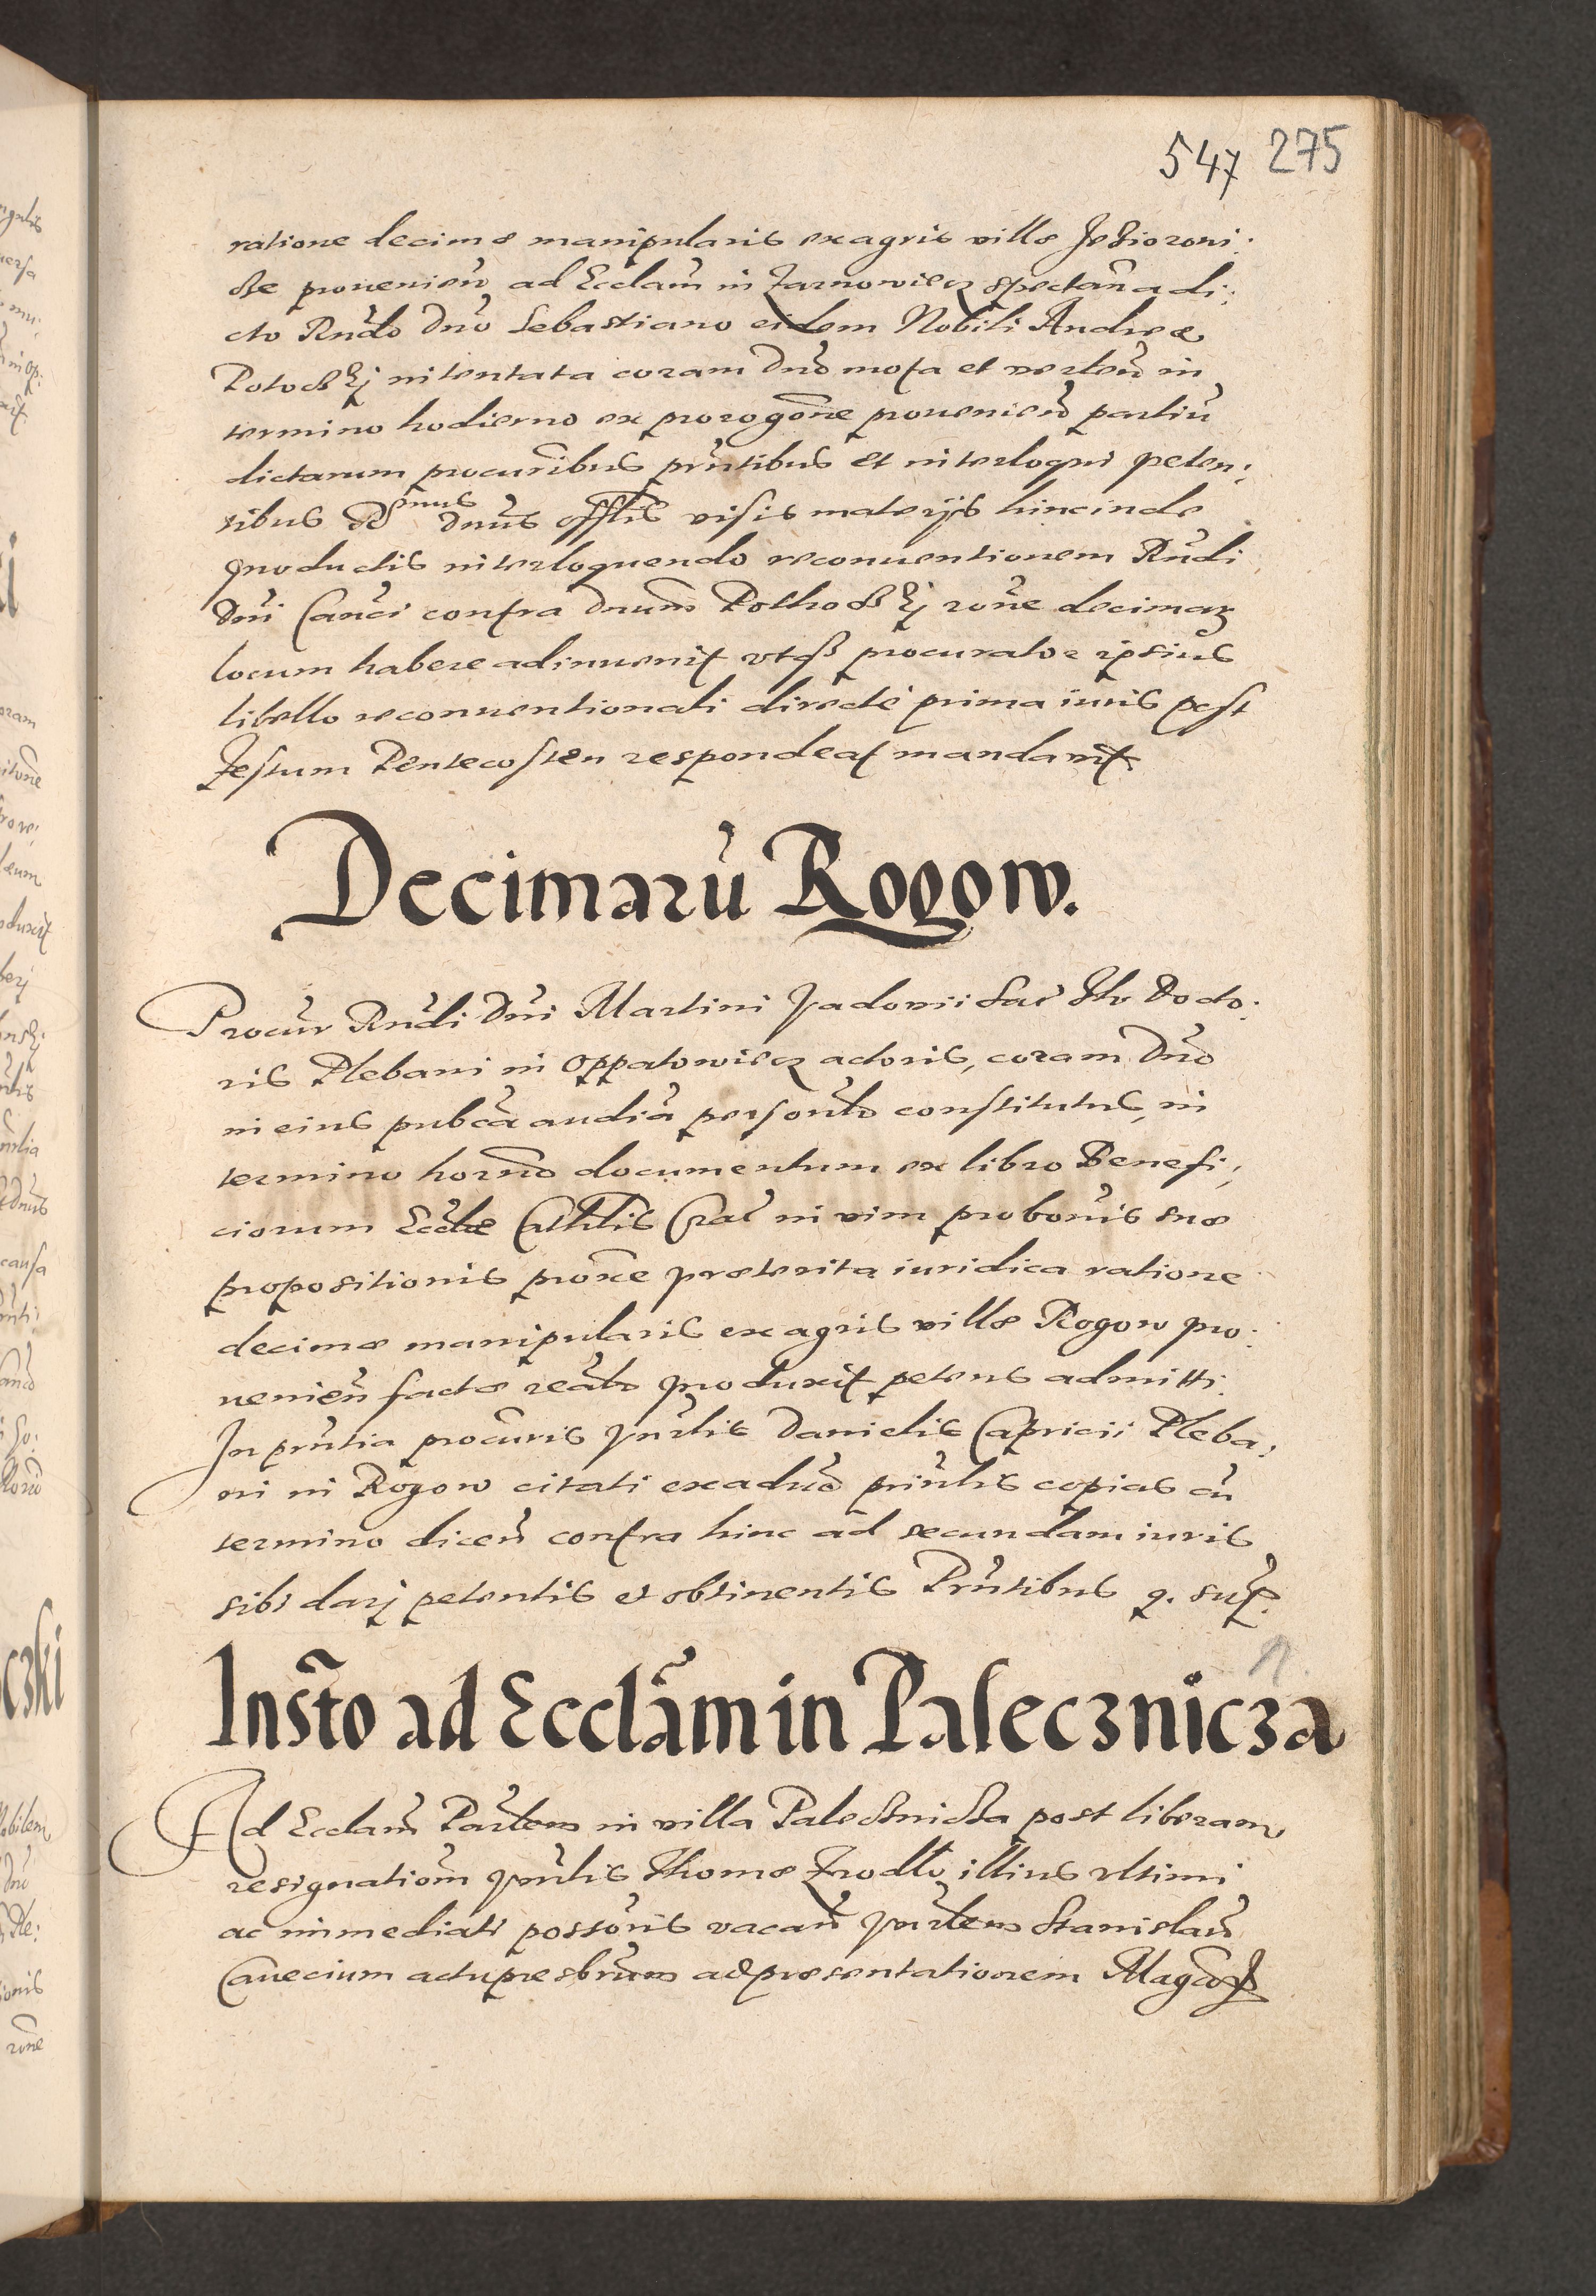 547 275
ratione decimæ manipularis ex agris villæ Jezioroni:
cze prouenień ad Ecclam̄ in Zarnowiecz spectań a di:
cto Rńdo Dńo Sebastiano eidem Nobili Andreæ
Potoczkj intentata coram Dńo mota et verteń in
termino hodierno ex prorogōne prouenień partiū
dictarum procurībus pńtibus et interloqui peten:
tibus Rmus Dńus offlis visis materijs hincinde
productis interloquendo reconuentionem Rńdi
Dńi Cauci contra Dnum Pothoczkj rōne decimar
locum habere adinuenit vtqz procurator ipsius
libello reconuentionali directè prima iuris post
Festum Pentecosten respondeat mandauit
Decimarū Rogow.
Procur Rńdi Dńi Martini Vadovii Sac Th Docto:
ris Plebani in Oppatowiecz actoris, coram Dńo
in eius pubca audīa personlr constitutus, in
termino horno documentum ex libro Benefi:
ciorum Eccliæ Cathlis Crac in vim probonis suæ
propositionis proxe præterita iuridica ratione
decimæ manipularis ex agris villæ Rogow pro:
uenień factæ realr produxit petens admitti.
In pńtia procuris Vnrlis Danielis Capricii Pleba:
ni in Rogow citati ex aduo prinlis copias cū
termino diceń contra hinc ad secundam iuris
sibi darj petentis et obtinentis Pńtibus q. sup.
Insto ad Ecclam in Palecznicza
Ad Ecclam Parlem in villa Palecznicza post liberam
resignationm Vnrlis Thomæ Zrodlo illius vltimi
ac immediati possoris vacań Vnrlem Stanislaū
Cauecium actu presbrum ad præsentationem Magcor